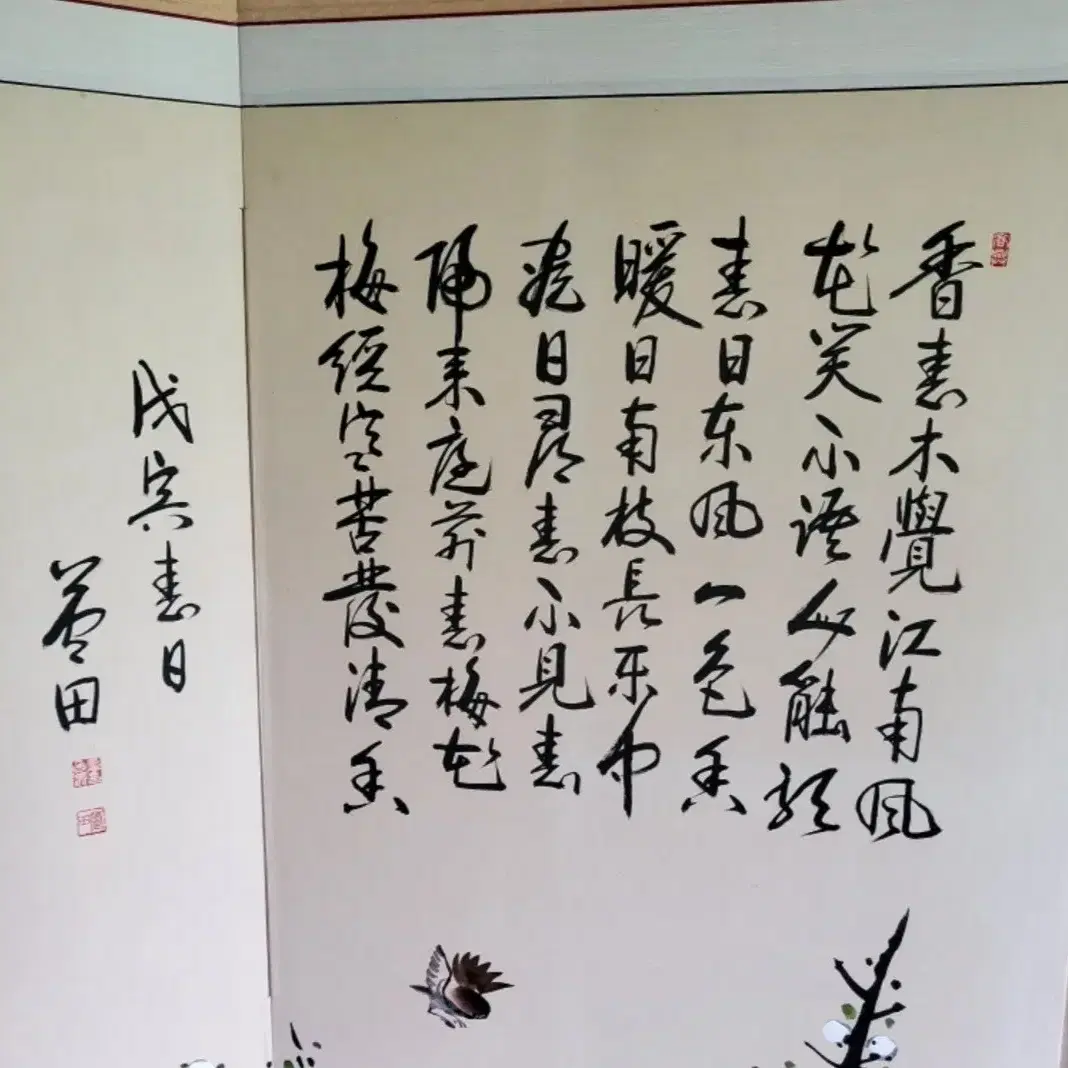 香春木覺江南風
花笑不語能
春日东风一色香
暖日南枝長乐中
盡日尋春不見春
歸来庭前春梅花
梅經寒苦發清香
戊寅春日
田